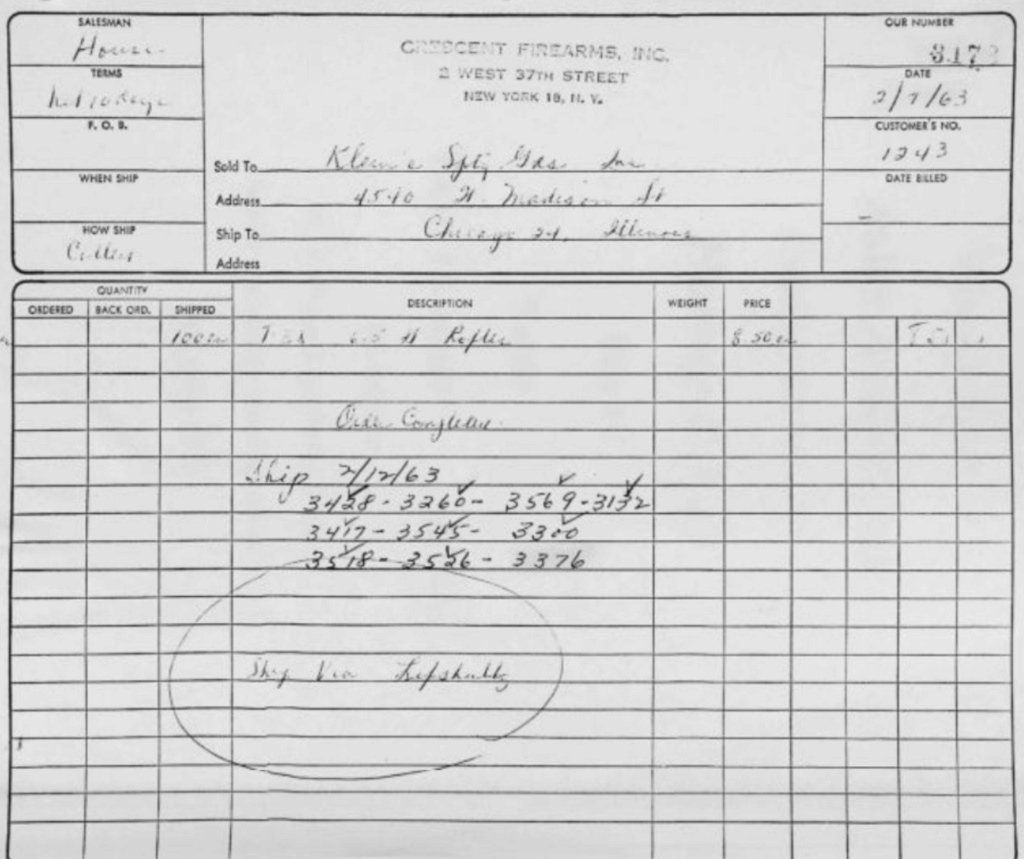 SALESMAN
House
TERMS
F. O. B.
WHEN SHIP
HOW SHIP
CRESCENT FIREARMS, INC.
2 WEST 37TH STREET
NEW YORK 18, N. Y.
Sold To Klein's Sptg Gds Inc
Address 4540 W. Madison St
Ship To Chicago 24, Illinois
Address
OUR NUMBER
3178
DATE
2/7/63
CUSTOMER'S NO.
1243
DATE BILLED
QUANTITY
ORDERED BACK ORD. SHIPPED DESCRIPTION WEIGHT PRICE
100 T-38 6.5 Rifles 8.50
Order Completed
Ship 2/12/63
3428 - 3260 - 3569 - 3132
3417 - 3545 - 3300
3518 - 3526 - 3376
Ship Via Lifschultz